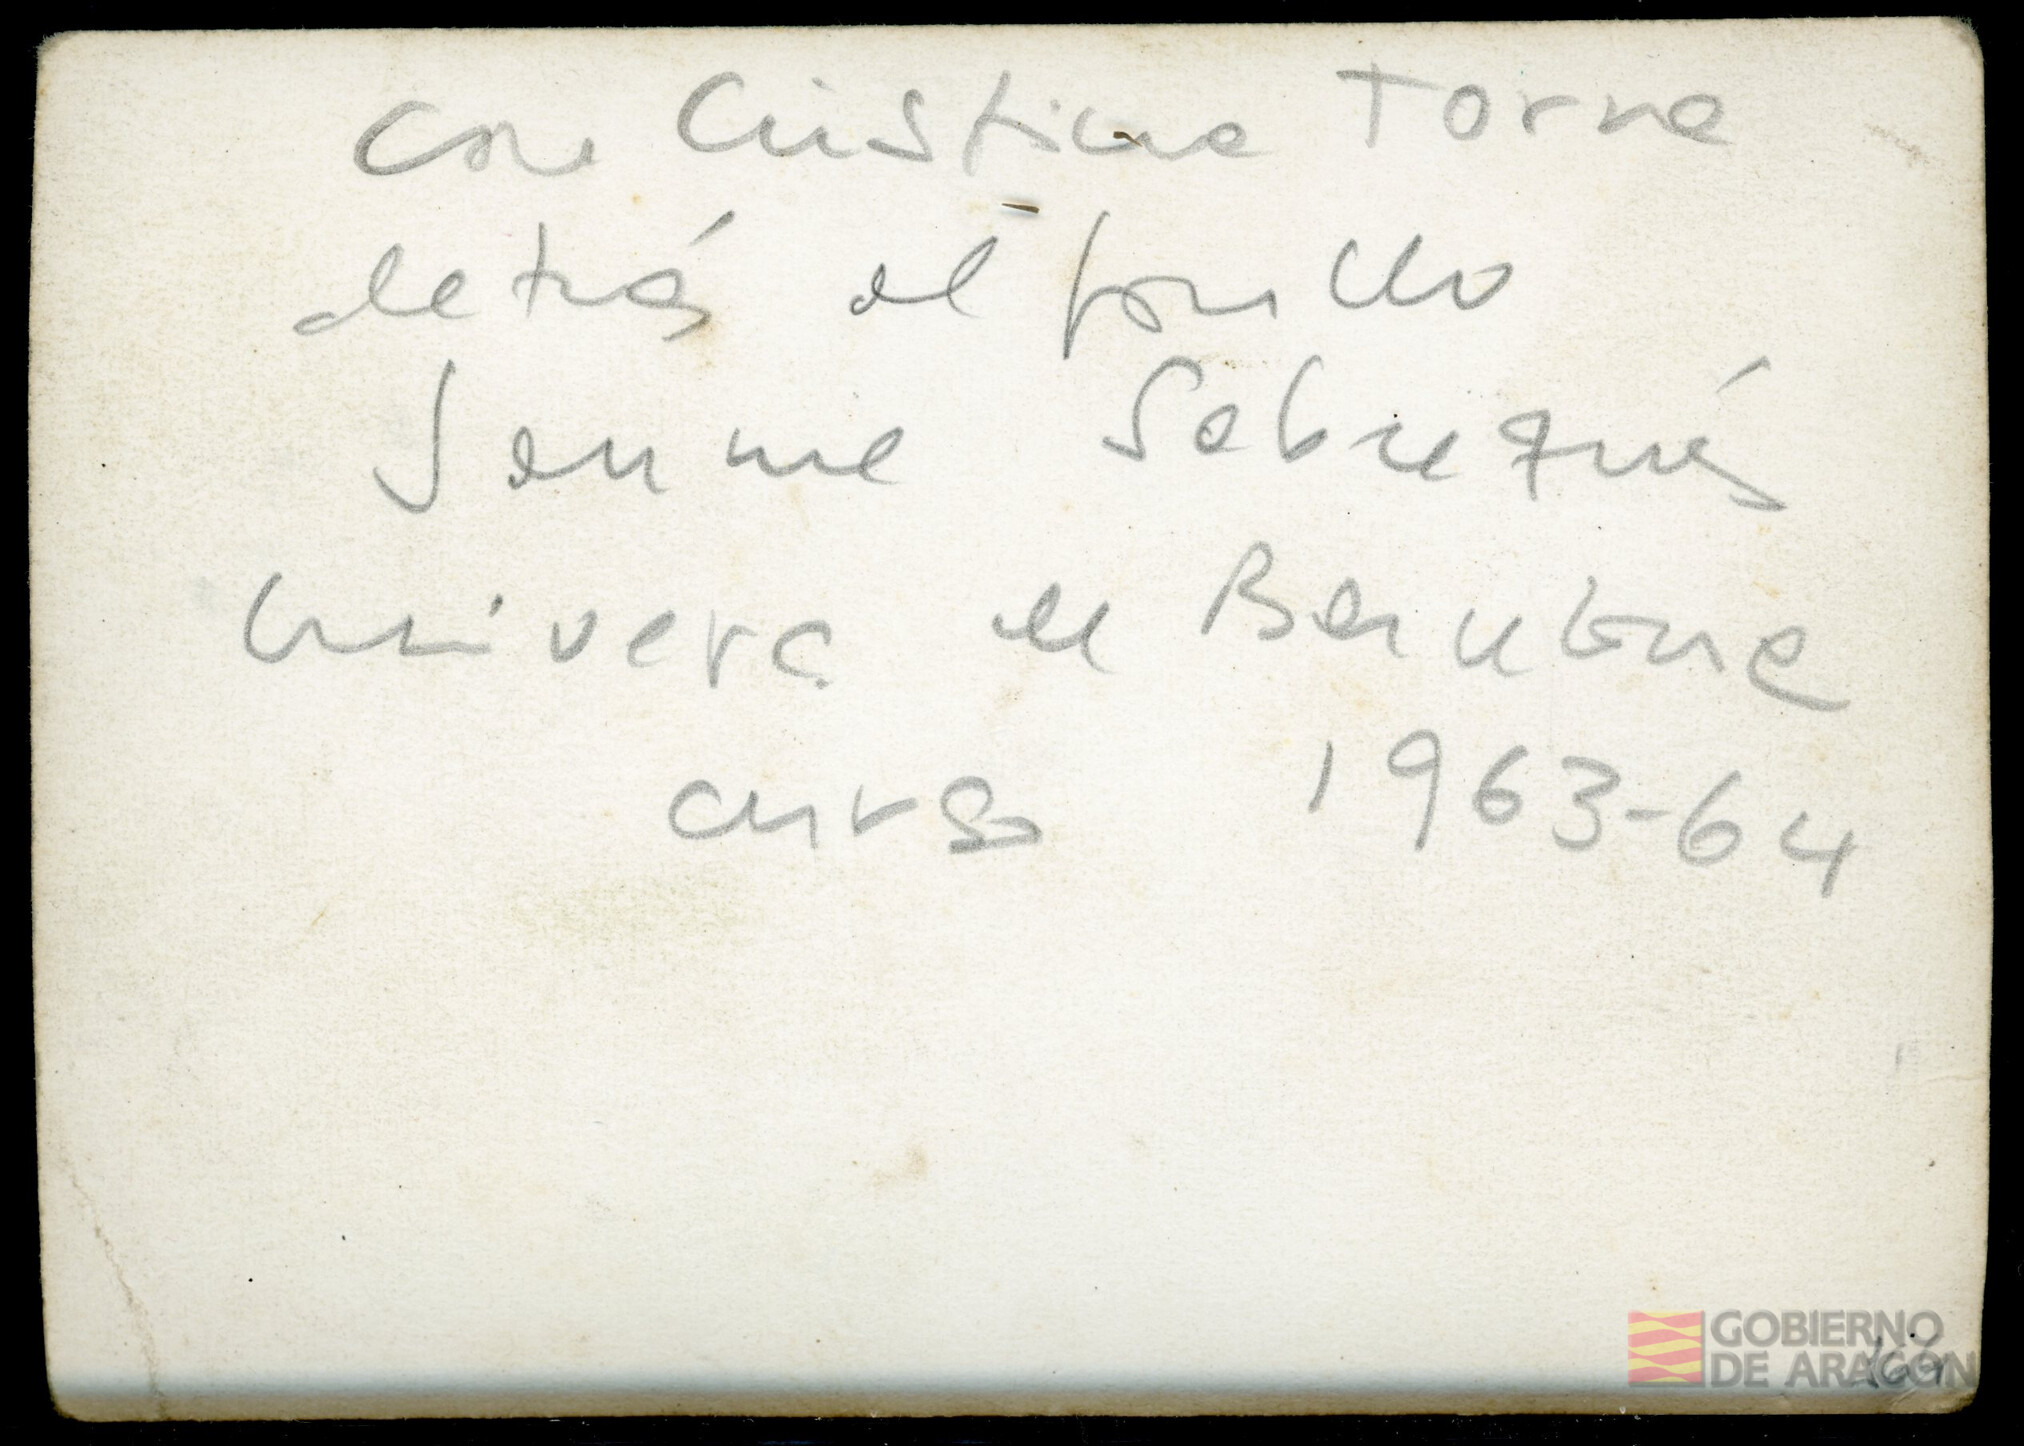 con Cristina Torra
detrás el fondo
Jaume Sobrequés
Univers. de Barcelona
curso 1963-64
GOBIERNO
DE ARAGON